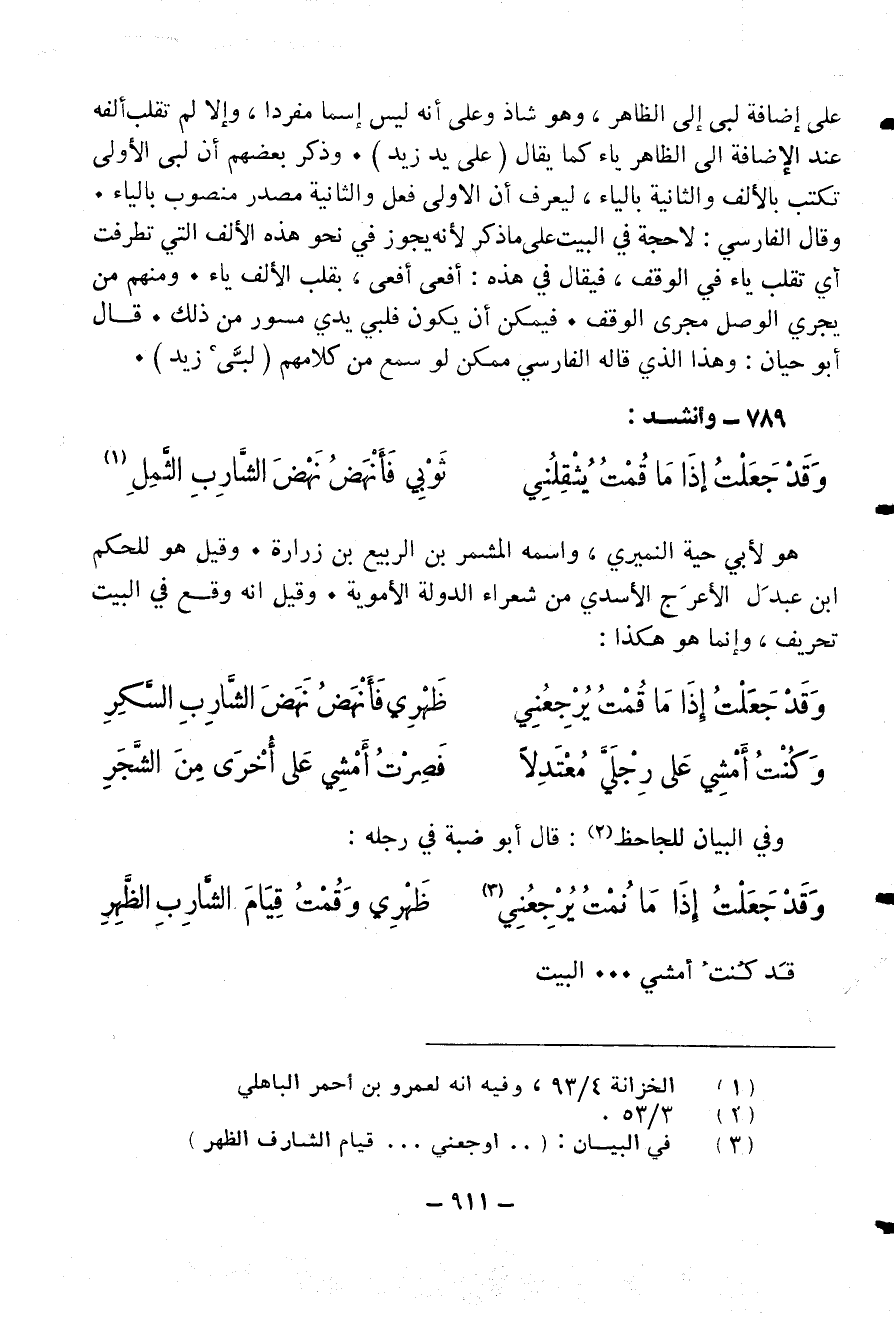 على إضافة لبى إلى الظاهر ، وهو شاذ وعلى أنه ليس إسما مفردا ، وإلا لم تقلب ألفه
عند الإضافة الى الظاهر ياء كما يقال ( على يد زيد ) • وذكر بعضهم أن لبى الأولى
تكتب بالألف والثانية بالياء ، ليعرف أن الاولى فعل والثانية مصدر منصوب بالياء •
وقال الفارسي : لاحجة في البيت على ماذكر لأنه يجوز في نحو هذه الألف التي تطرفت
أي تقلب ياء في الوقف ، فيقال في هذه : أفعى أفعى ، بقلب الألف ياء • ومنهم من
يجري الوصل مجرى الوقف • فيمكن أن يكون فلبي يدي مسور من ذلك • قــال
أبو حيان : وهذا الذي قاله الفارسي ممكن لو سمع من كلامهم ( لبَّى ْ زيد ) •
٧٨٩ ــ وأنشــد :
وَقَدْ جَعَلْتُ إذَا مَا قُمْتُ يُثْقِلُنِي ثَوْبِي فَأَنْهَضُ نَهْضَ الشَّارِبِ الثَّمِلِ (١)
هو لأبي حية النميري ، واسمه المشمر بن الربيع بن زرارة • وقيل هو للحكم
ابن عبدَل الأعرَج الأسدي من شعراء الدولة الأموية • وقيل انه وقــع في البيت
تحريف ، وإنما هو هكذا :
وَقَدْ جَعَلْتُ إِذَا مَا قُمْتُ يُرْجِعُنِي ظَهْرِي فَأَنْهَضُ نَهَضَ الشَّارِبِ السَّكِرِ
وَكُنْتُ أَمْشِي عَلَى رِجْلَيَّ مُعْتَدِلاً فَصِرْتُ أَمْشِي عَلَى أُخْرَى مِنَ الشَّجَرِ
وفي البيان للجاحظ (٢) : قال أبو ضبة في رجله :
وَقَدْ جَعَلْتُ إِذَا مَا نُمْتُ يُرْجِعُنِي (٣) ظَهْرِي وَقُمْتُ قِيَامَ الشَّارِبِ الظَّهِرِ
قَد كنُتُ أمشي ••• البيت
(١) الخزانة ٩٣/٤ ، وفيه انه لعمرو بن أحمر الباهلي
(٢) ٥٣/٣ .
(٣) في البيــان : ( .. اوجعني ... قيام الشارف الظهر )
ــ ٩١١ ــ